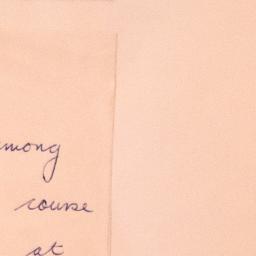 among
course
at